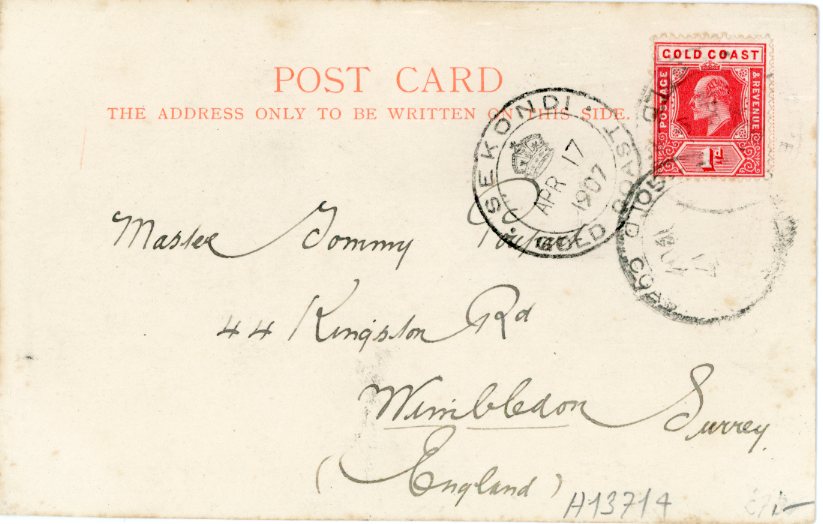 POST CARD
THE ADDRESS ONLY TO BE WRITTEN ON THIS SIDE.
GOLD COAST
POSTAGE
& REVENUE
1d
SEKONDI
APR 17
1907
GOLD COAST
GOLD COAS
Master Tommy
44 Kingston Rd
Wimbledon
Surrey
(England)
H13714